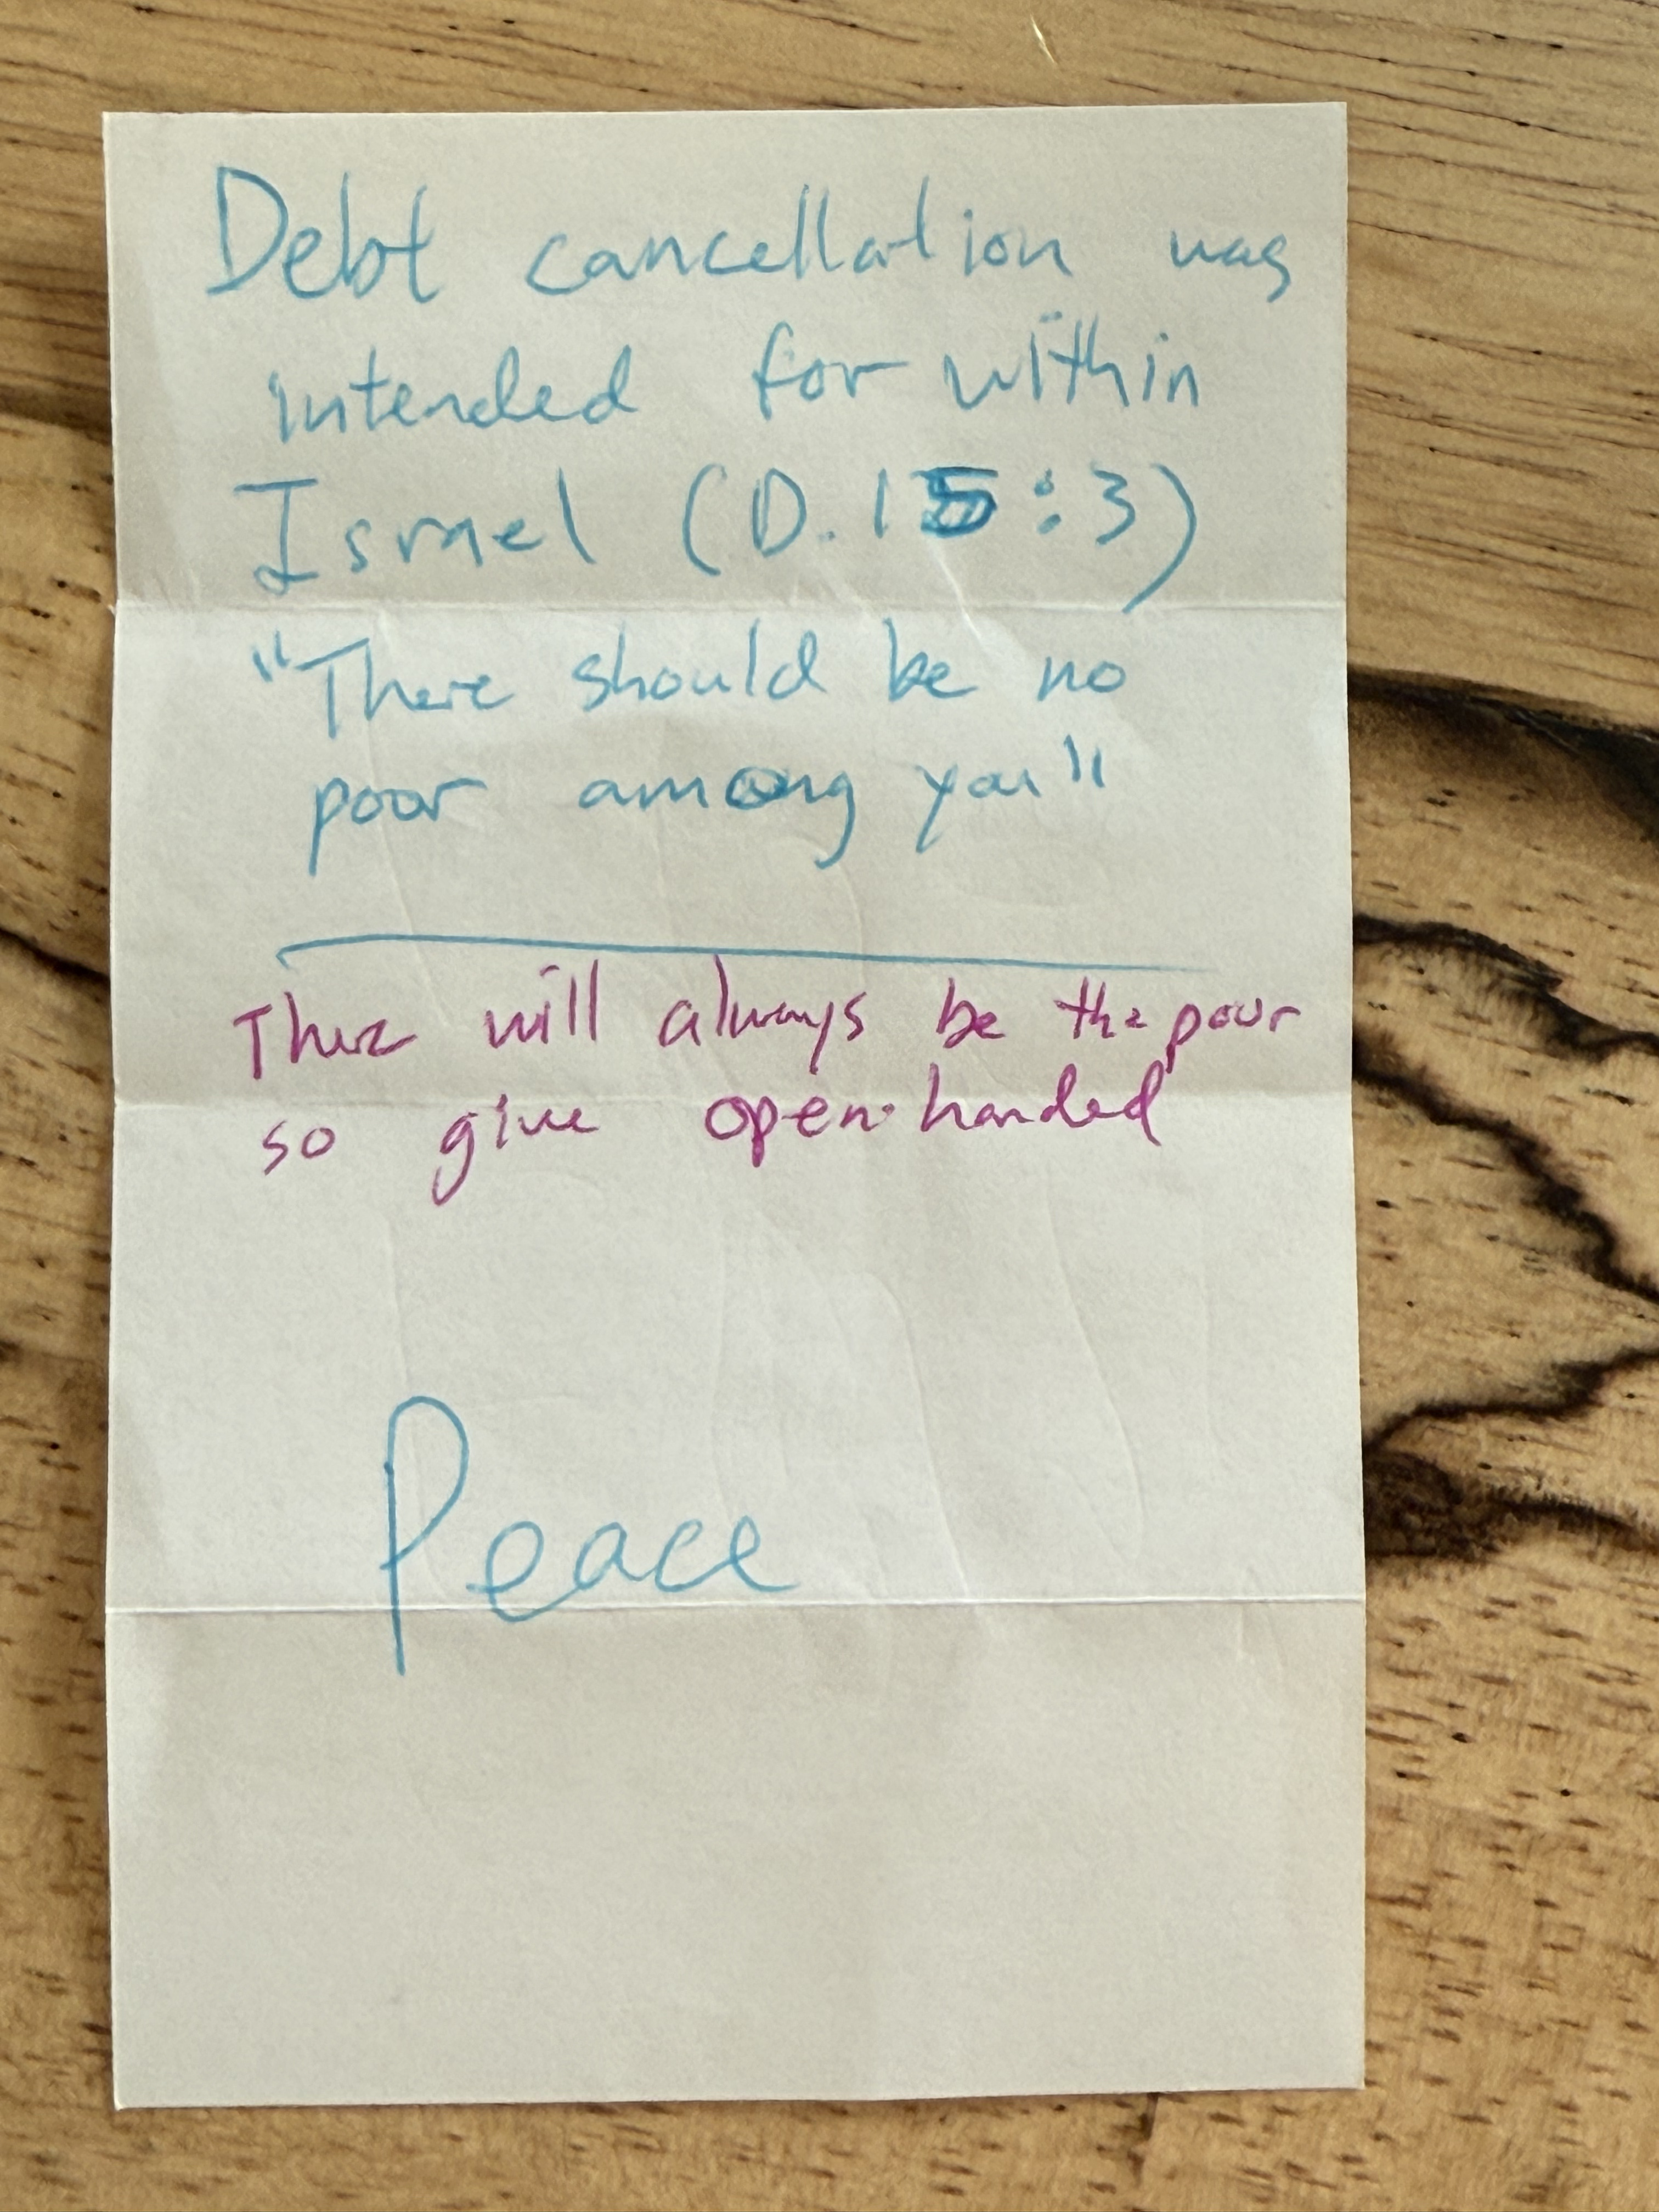 Debt cancellation was
intended for within
Israel (D. 15:3)
"There should be no
poor among you"
There will always be the poor
so give open-handed
Peace